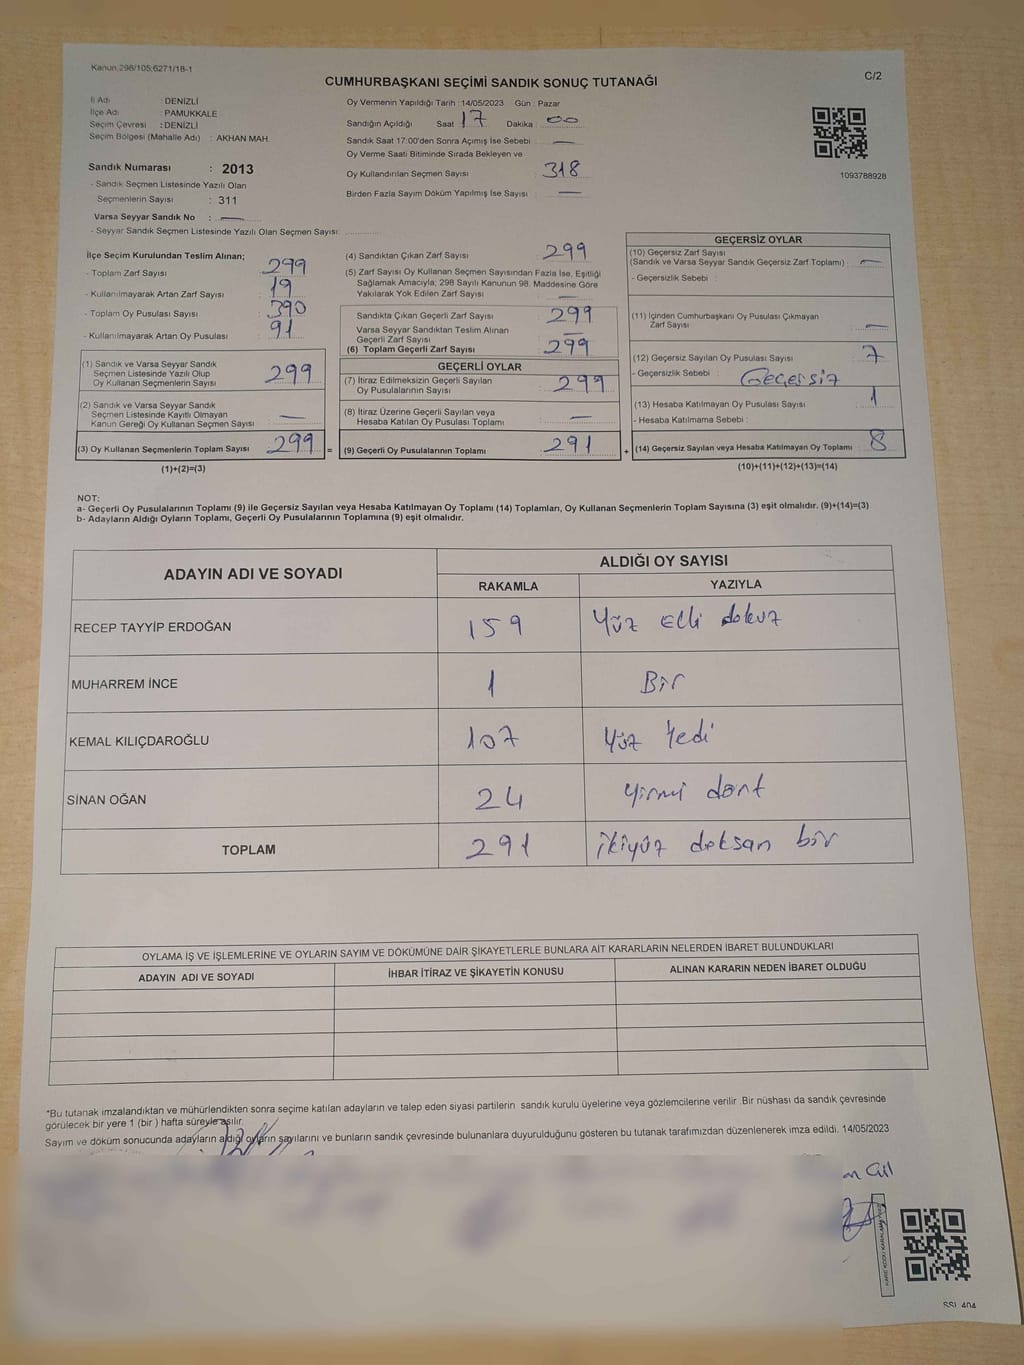 Kanun:298/105;6271/18-1
C/2
CUMHURBAŞKANI SEÇİMİ SANDIK SONUÇ TUTANAĞI
İl Adı : DENİZLİ
İlçe Adı : PAMUKKALE
Seçim Çevresi : DENİZLİ
Seçim Bölgesi (Mahalle Adı) : AKHAN MAH.
Sandık Numarası : 2013
- Sandık Seçmen Listesinde Yazılı Olan
Seçmenlerin Sayısı : 311
Varsa Seyyar Sandık No : —
- Seyyar Sandık Seçmen Listesinde Yazılı Olan Seçmen Sayısı: ............
Oy Vermenin Yapıldığı Tarih :14/05/2023 Gün : Pazar
Sandığın Açıldığı Saat 17 Dakika : 00
Sandık Saat 17:00'den Sonra Açımış İse Sebebi : —
Oy Verme Saati Bitiminde Sırada Bekleyen ve
Oy Kullandırılan Seçmen Sayısı : 318
Birden Fazla Sayım Döküm Yapılmış İse Sayısı : —
1093788928
İlçe Seçim Kurulundan Teslim Alınan;
- Toplam Zarf Sayısı : 299
- Kullanılmayarak Artan Zarf Sayısı : 19
- Toplam Oy Pusulası Sayısı : 390
- Kullanılmayarak Artan Oy Pusulası : 91
(1) Sandık ve Varsa Seyyar Sandık
Seçmen Listesinde Yazılı Olup
Oy Kullanan Seçmenlerin Sayısı : 299
(2) Sandık ve Varsa Seyyar Sandık
Seçmen Listesinde Kayıtlı Olmayan
Kanun Gereği Oy Kullanan Seçmen Sayısı : —
(3) Oy Kullanan Seçmenlerin Toplam Sayısı : 299 =
(1)+(2)=(3)
(4) Sandıktan Çıkan Zarf Sayısı : 299
(5) Zarf Sayısı Oy Kullanan Seçmen Sayısından Fazla İse, Eşitliği
Sağlamak Amacıyla; 298 Sayılı Kanunun 98. Maddesine Göre
Yakılarak Yok Edilen Zarf Sayısı : —
Sandıkta Çıkan Geçerli Zarf Sayısı : 299
Varsa Seyyar Sandıktan Teslim Alınan
Geçerli Zarf Sayısı : —
(6) Toplam Geçerli Zarf Sayısı : 299
GEÇERLİ OYLAR
(7) İtiraz Edilmeksizin Geçerli Sayılan
Oy Pusulalarının Sayısı : 299
(8) İtiraz Üzerine Geçerli Sayılan veya
Hesaba Katılan Oy Pusulası Toplamı : —
(9) Geçerli Oy Pusulalarının Toplamı : 291 +
GEÇERSİZ OYLAR
(10) Geçersiz Zarf Sayısı
(Sandık ve Varsa Seyyar Sandık Geçersiz Zarf Toplamı) : —
- Geçersizlik Sebebi :
(11) İçinden Cumhurbaşkanı Oy Pusulası Çıkmayan
Zarf Sayısı : —
(12) Geçersiz Sayılan Oy Pusulası Sayısı : 7
- Geçersizlik Sebebi : Geçersiz
(13) Hesaba Katılmayan Oy Pusulası Sayısı : 1
- Hesaba Katılmama Sebebi :
(14) Geçersiz Sayılan veya Hesaba Katılmayan Oy Toplamı : 8
(10)+(11)+(12)+(13)=(14)
NOT:
a- Geçerli Oy Pusulalarının Toplamı (9) ile Geçersiz Sayılan veya Hesaba Katılmayan Oy Toplamı (14) Toplamları, Oy Kullanan Seçmenlerin Toplam Sayısına (3) eşit olmalıdır. (9)+(14)=(3)
b- Adayların Aldığı Oyların Toplamı, Geçerli Oy Pusulalarının Toplamına (9) eşit olmalıdır.
ADAYIN ADI VE SOYADI ALDIĞI OY SAYISI
RAKAMLA YAZIYLA
RECEP TAYYİP ERDOĞAN 159 Yüz Elli dokuz
MUHARREM İNCE 1 Bir
KEMAL KILIÇDAROĞLU 107 Yüz Yedi
SİNAN OĞAN 24 Yirmi dört
TOPLAM 291 ikiyüz doksan bir
OYLAMA İŞ VE İŞLEMLERİNE VE OYLARIN SAYIM VE DÖKÜMÜNE DAİR ŞİKAYETLERLE BUNLARA AİT KARARLARIN NELERDEN İBARET BULUNDUKLARI
ADAYIN ADI VE SOYADI İHBAR İTİRAZ VE ŞİKAYETİN KONUSU ALINAN KARARIN NEDEN İBARET OLDUĞU
*Bu tutanak imzalandıktan ve mühürlendikten sonra seçime katılan adayların ve talep eden siyasi partilerin sandık kurulu üyelerine veya gözlemcilerine verilir .Bir nüshası da sandık çevresinde
görülecek bir yere 1 (bir ) hafta süreyle asılır.
Sayım ve döküm sonucunda adayların aldığı oyların sayılarını ve bunların sandık çevresinde bulunanlara duyurulduğunu gösteren bu tutanak tarafımızdan düzenlenerek imza edildi. 14/05/2023
Gül